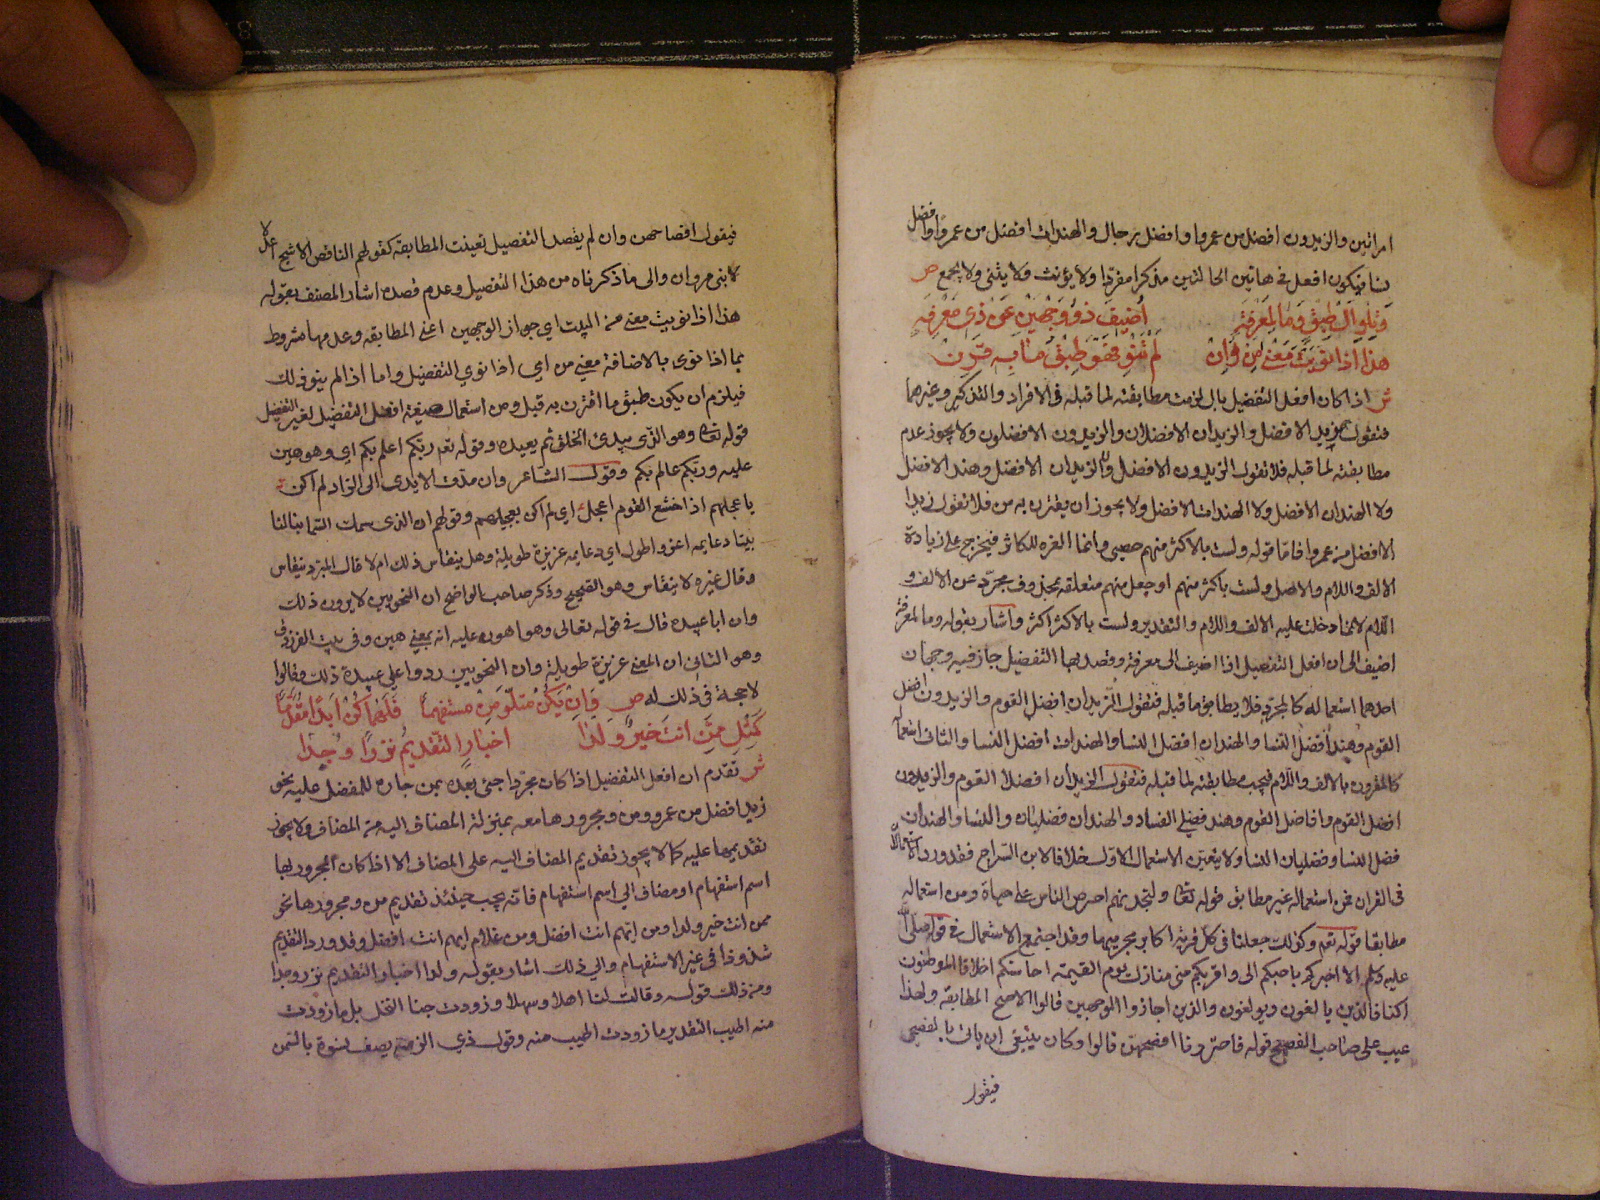 امراتين والزيدون افضل من عمرو وافضل رجال والهندات افضل من عمرو وافضل
نسا فيكون افعل في هاتين الحالتين مذكرا مفردا ولا يؤنث ولا يثنى ولا يجمع ص
وَتِلْوُ اَلْ طِبْقٌ وَمَا لِمَعْرِفَة اُضِيفَ ذُو وَجْهَيْنِ عَنْ ذِي مَعْرِفَة
هذا اِذا نَوَيْتَ مَعْنَى مِنْ وَاِنْ لَمْ تَنْوِ فَهْوَ طِبْقُ مَا بِهِ قُرِنْ
ش اذا كان افعل التفضيل بال لزمت مطابقته لما قبله في الافراد والتذكير وغيرهما
فتقول زيد الافضل والزيدان الافضلان والزيدون الافضلون ولا يجوز عدم
مطابقته لما قبله فلا تقول الزيدون الافضل ولا الزيدان الافضل وهند الافضل
ولا الهندان الافضل ولا الهندات الافضل ولا يجوز ان يقترن به من فلا تقول زيد
الافضل من عمرو فاما قوله ولست بالاكثر منهم حصى وانما العزة للكاثر فيخرج على زيادة
الالف واللام والاصل ولست باكثر منهم او جعل منهم متعلقه بمحذوف مجرد عن الالف و
اللام لا بما دخلت عليه الالف واللام والتقدير ولست بالاكثر اكثر واشار بقوله وما لمعرفة
اضيف الى ان افعل التفضيل اذا اضيف الى معرفة وقصد بها التفضيل جاز فيه وجهان
احدهما استعماله كالمجرد فلا يطابق ما قبله فتقول الزيدان افضل القوم والزيدون افضل
القوم وهند افضل النسا والهندان افضل النسا والهندات افضل النسا والثاني استعما
كالمقرون بالالف واللام فيجب مطابقته لما قبله فتقول الزيدان افضلا القوم والزيدون
افضل القوم وافاضل القوم وهند فضلى النسا والهندان فضليان والنسا والهندات
فضل النسا وفضليات النسا ولا يتعين الاستعمال الاول خلافا لابن السراج فقد ورد
في القران فمن استعماله غير مطابق قوله تعا ولتجدنهم احرص الناس على حياة ومن استعماله
مطابقا قوله تعم وكذلك جعلنا في كل قرية اكابر مجرميها وقد اجتمع الاستعمال في قوله صلى الله
عليه وسلم الا اخبركم باحبكم الى واقربكم مني منازل يوم القيمة احاسنكم اخلاقا الموطئون
اكنافا الذين يالفون ويولفون والذين اجازوا الوجهين قالوا الافصح المطابقه ولهذا
عيب على صاحب الفصيح قوله فاخترنا افصحهن قالوا وكان ينبغي ان ياتي بالفصحى
فيقول
فيقول افصاحهن وان لم يقصد التفضيل تعينت المطابقه كقولهم الناقص والاشج اعدلا
لا بني مروان والى ما ذكرناه من هذا التفصيل وعدم قصده اشار المصنف بقوله
هذا اذا نويت معنى من البيت اي جواز الوجهين اعني المطابقه وعدمها مشروط
بما اذا نوى بالاضافة معنى من اي اذا نوى التفضيل واما اذا لم ينو ذلك
فيلزم ان يكون طبق ما اقترن به قيل ومن استعمال صيغة افعل التفضيل لغير التفضيل
قوله تعا وهو الذي يبدئ الخلق ثم يعيده وقوله تعم ربكم اعلم بكم اي وهو هين
عليه وربكم عالم بكم وقول الشاعر وان مدت الايدي الى الزاد لم اكن
باعجلهم اذ اخشع القوم اعجل اي لم اكن بعجلهم وقولهم ان الذي سمك السما بنا لنا
بيتا دعايمه اعز واطول اي دعايمه عزيزة طويلة وهل ينقاس ذلك ام لا قال المبرد ينقاس
وقال غيره لا ينقاس وهو الصحيح وذكر صاحب الواضح ان النحويين لا يرون ذلك
وان ابا عبيده قال في قوله تعالى وهو اهون عليه انه بمعنى هين وفي بيت الفرزدق
وهو الثاني ان المعنى عزيزة طويلة وان النحويين ردوا على عبيدة ذلك وقالوا
لا حجة في ذلك له ص وَاِنْ يَكُنْ بِتِلْوِ مِنْ مُسْتَفْهِمَا فَلَهُمَا كُنْ اَبَدًا مُقَدِّمَا
كَمِثْلِ مِمَّنْ اَنْتَ خَيْرٌ وَلَدَا اخبارٍ التَّقْدِيمُ نَزْرًا وُجِدَا
ش تقدم ان افعل التفضيل اذا كان مجردا جئ بعده بمن جاره للمفضل عليه نحو
زيد افضل من عمرو ومن ومجرورها معه بمنزلة المضاف اليه من المضاف ولا يجوز
تقديمها عليه كما لا يجوز تقديم المضاف اليه على المضاف الا اذا كان المجرور بها
اسم استفهام او مضاف الى اسم استفهام فانه يجب حينئذ تقديم من ومجرورها نحو
ممن انت خير ولدا ومن ايهم انت افضل ومن غلام ايهم انت افضل وقد ورد التقديم
شذوذا في غير الاستفهام والى ذلك اشار بقوله ولدا اخبار التقديم نزر وجدا
ومن ذلك قوله وقالت لنا اهلا وسهلا وزودت جنا النحل بل ما زودت
منه اطيب التقدير ما زودت اطيب منه وقول ذي الرمة يصف نسوة بالسمن